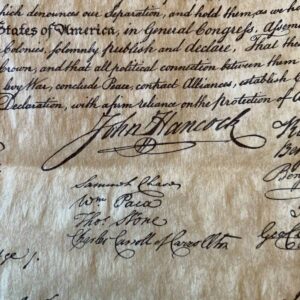 which denounces our Separation, and hold them, as we ho
States of America, in General Congress, Assem
Colonies, solemnly publish and declare, That th
Crown, and that all political connection between them
levy War, conclude Peace, contract Alliances, establish C
Declaration, with a firm reliance on the Protection of
John Hancock
Samuel Chase
Wm Paca
Thos Stone
Charles Carroll of Carrollton
Geo